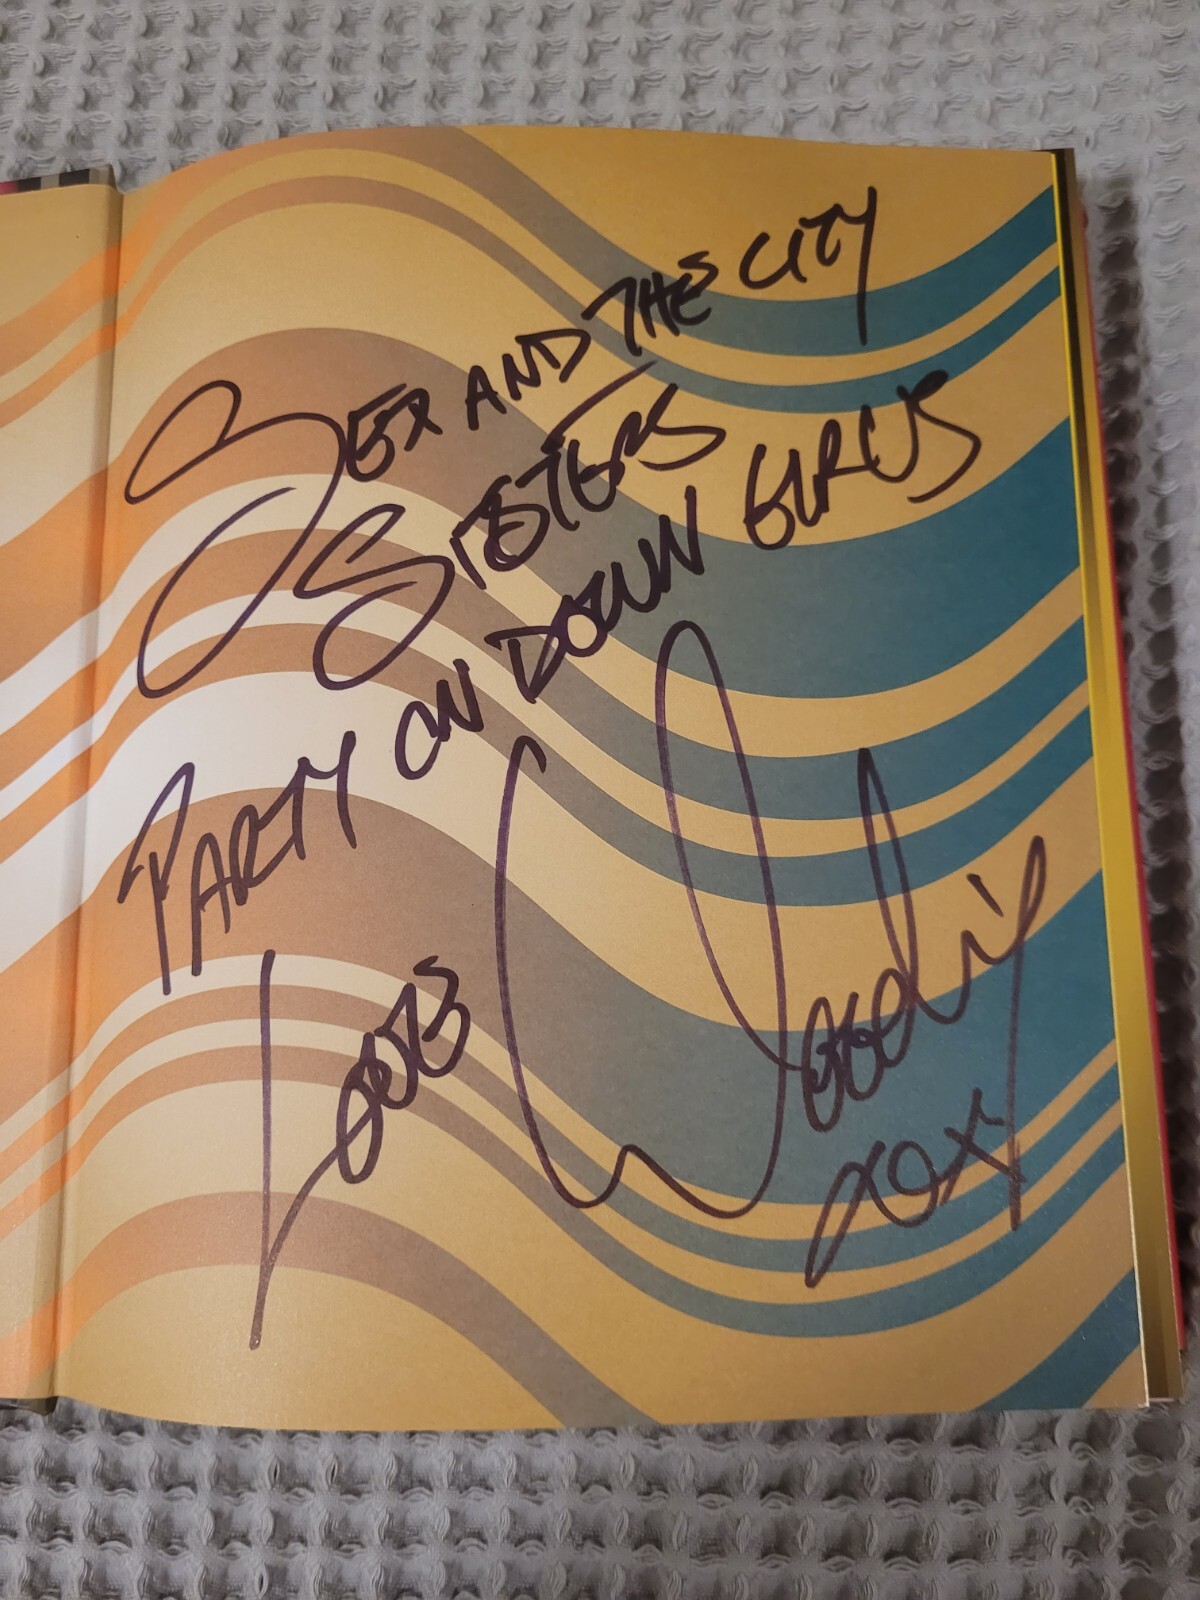 SEX AND THE CITY
SISTERS
PARTY ON DOWN GURLS
LOVE
Woody
XOX